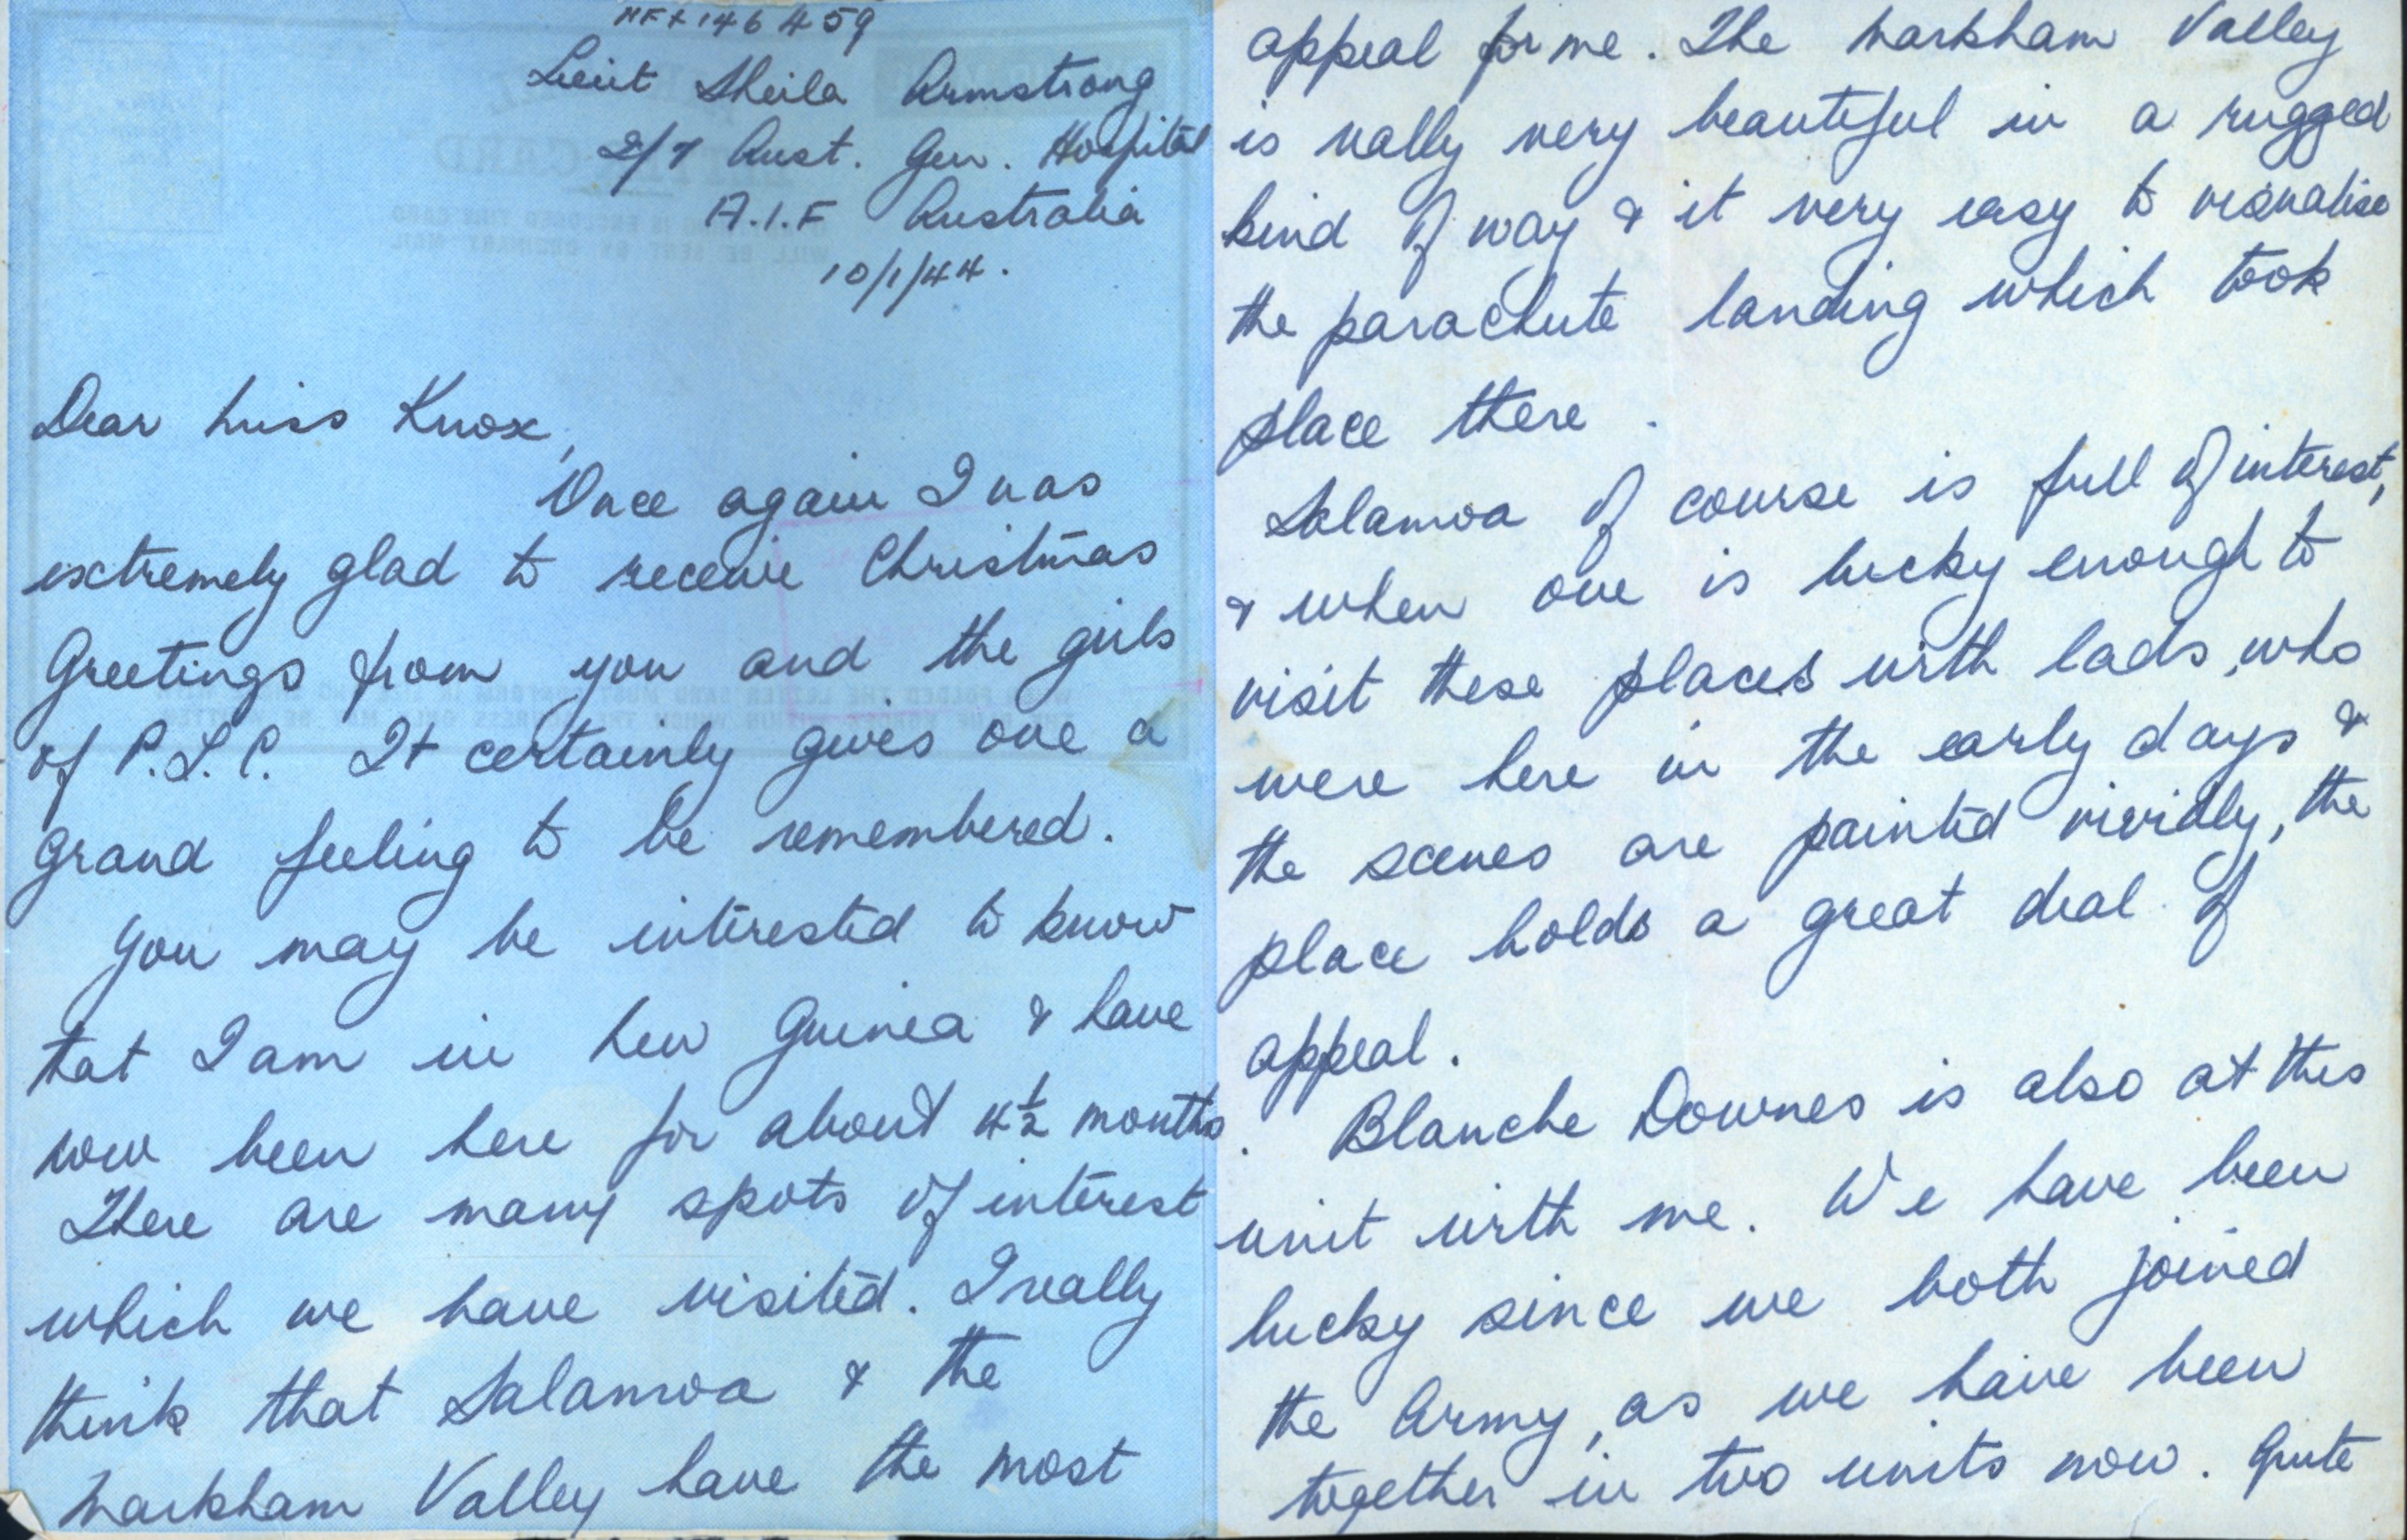 NFX146459
Lieut Sheila Armstrong
2/7 Aust. Gen. Hospital
A.I.F Australia
10/1/44.
Dear Miss Knox,
Once again I was
extremely glad to receive Christmas
Greetings from you and the girls
of P.L.C. It certainly gives one a
grand feeling to be remembered.
You may be interested to know
that I am in New Guinea & have
now been here for about 4½ months.
There are many spots of interest
which we have visited. I really
think that Salamoa & the
Markham Valley have the most
appeal for me. The Markham Valley
is really very beautiful in a rugged
kind of way & it very easy to visualise
the parachute landing which took
place there.
Salamoa of course is full of interest,
& when one is lucky enough to
visit these places with lads, who
were here in the early days &
the scenes are painted vividly, the
place holds a great deal of
appeal.
Blanche Downes is also at this
unit with me. We have been
lucky since we both joined
the Army, as we have been
together in two units now. Quite